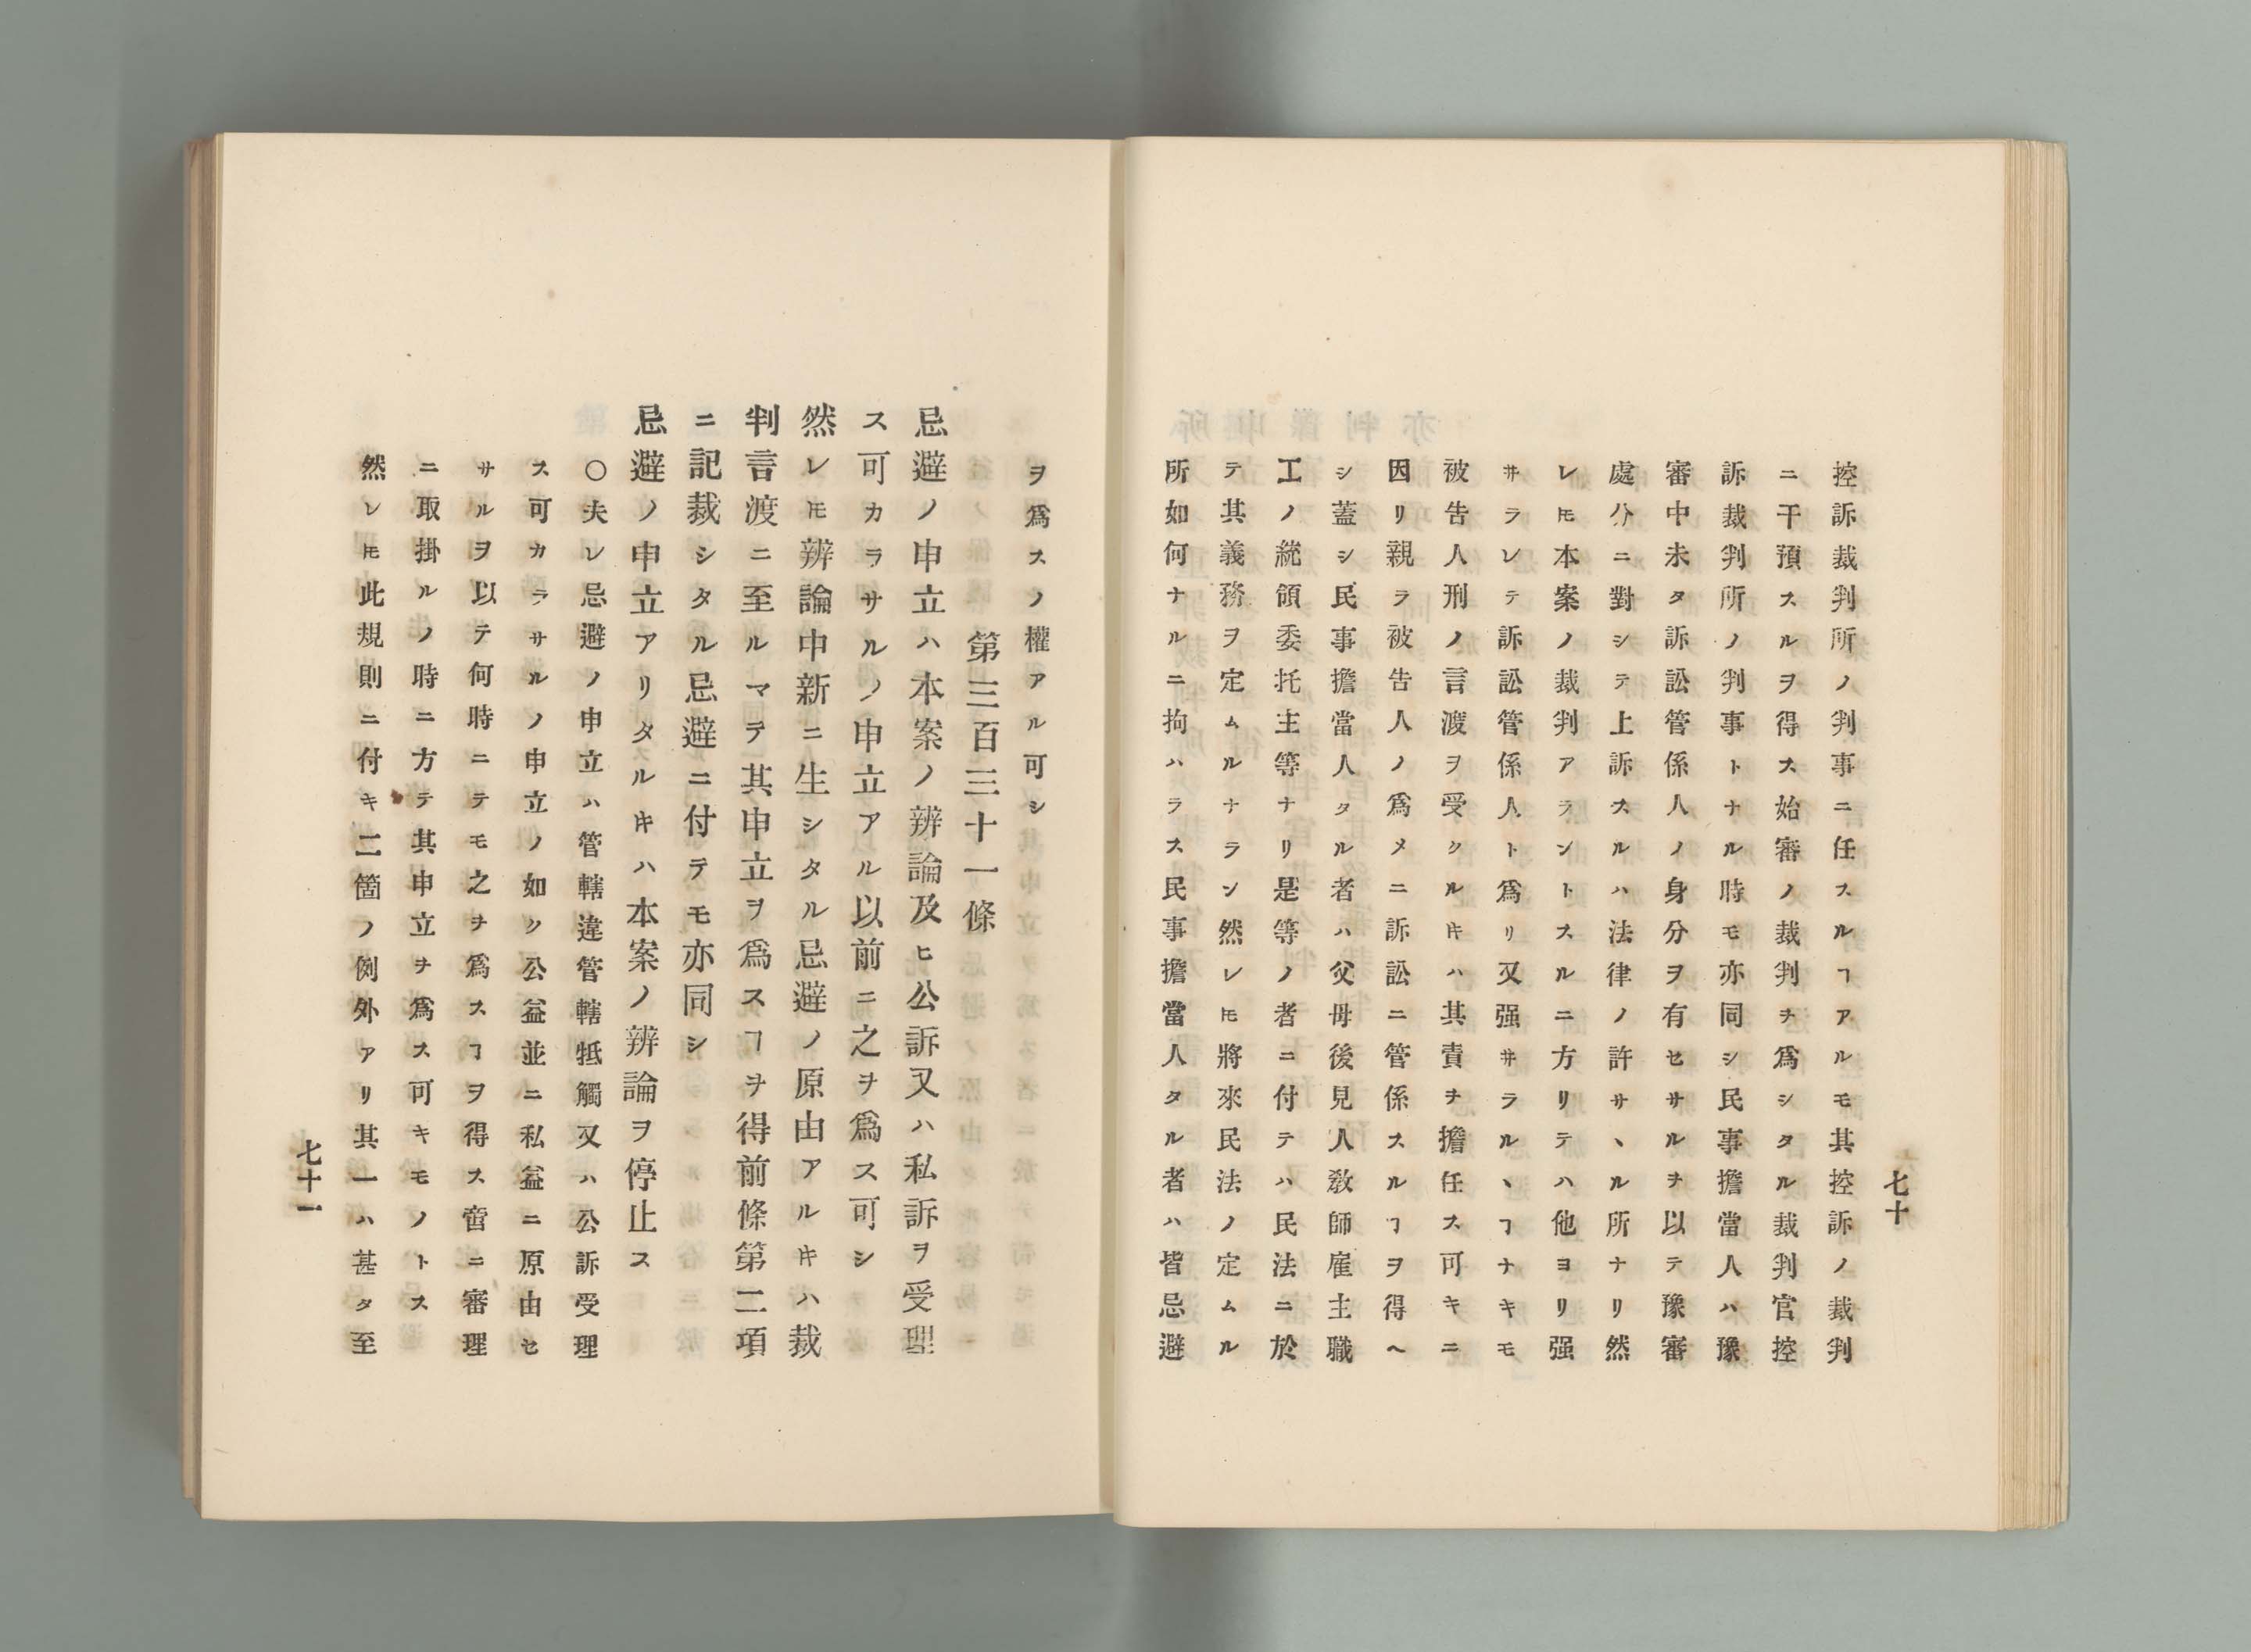 控訴裁判所ノ判事ニ任スルヿアルモ其控訴ノ裁判
ニ干預スルヲ得ス始審ノ裁判ヲ爲シタル裁判官控
訴裁判所ノ判事トナル時モ亦同シ民事擔當人ハ豫
審中未タ訴訟管係人ノ身分ヲ有セサルヲ以テ豫審
處分ニ對シテ上訴スルハ法律ノ許サヽル所ナリ然
レ𪜈本案ノ裁判アラントスルニ方リテハ他ヨリ强
サラレテ訴訟管係人ト爲リ又强サラルヽヿナキモ
被告人刑ノ言渡ヲ受クル𪜈ハ其責ヲ擔任ス可キニ
因リ親ラ被告人ノ爲メニ訴訟ニ管係スルヿヲ得ヘ
シ蓋シ民事擔當人タル者ハ父母後見人敎師雇主職
工ノ統領委托主等ナリ是等ノ者ニ付テハ民法ニ於
テ其義務ヲ定ムルナラン然レ𪜈將來民法ノ定ムル
所如何ナルニ拘ハラス民事擔當人タル者ハ皆忌避
七十
ヲ爲スノ權アル可シ
第三百三十一條
忌避ノ申立ハ本案ノ辨論及ヒ公訴又ハ私訴ヲ受理
ス可カラサルノ申立アル以前ニ之ヲ爲ス可シ
然レ𪜈辨論中新ニ生シタル忌避ノ原由アルキハ裁
判言渡ニ至ルマテ其申立ヲ爲スヿヲ得前條第二項
ニ記裁シタル忌避ニ付テモ亦同シ
忌避ノ申立アリタルキハ本案ノ辨論ヲ停止ス
○夫レ忌避ノ申立ハ管轄違管轄牴觸又ハ公訴受理
ス可カラサルノ申立ノ如ク公益並ニ私益ニ原由セ
サルヲ以テ何時ニテモ之ヲ爲スヿヲ得ス啻ニ審理
ニ取掛ルノ時ニ方テ其申立ヲ爲ス可キモノトス
然レ𪜈此規則ニ付キ二箇ノ例外アリ其一ハ甚タ至
七十一